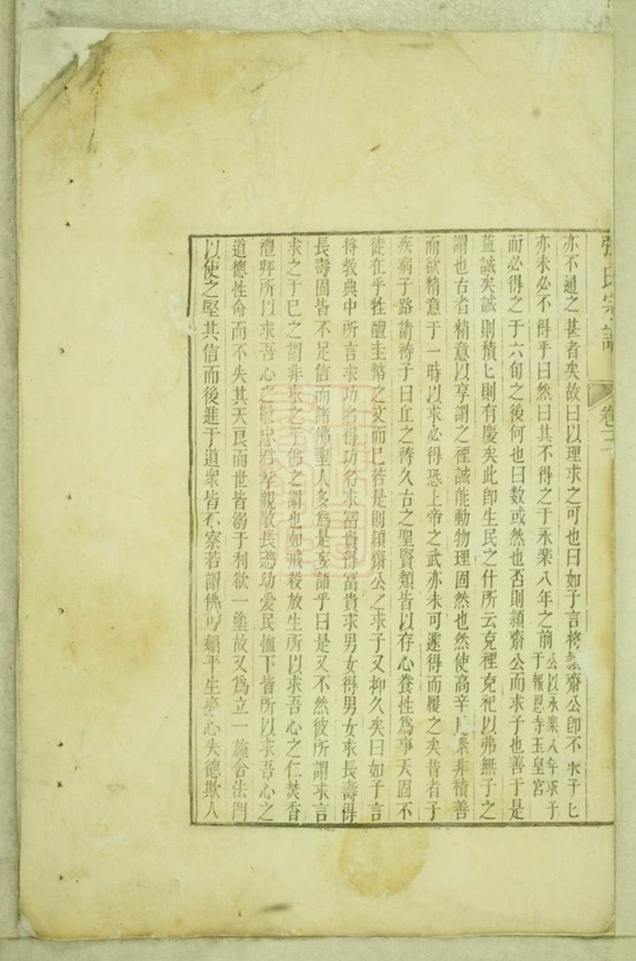 張氏宗譜
卷二
亦不通之甚者矣故曰以理求之可也曰如子言將穎齋公卽不求子
亦未必不得乎曰然曰其不得之于永樂八年之前公以永樂八年求于
于報恩寺玉皇宮
而必得之于六旬之後何也曰數或然也否則穎齋公而求子也善于是
蓋誠矣誠則積則有慶矣此卽生民之什所云克禋克祀以弗無子之
謂也古者精意以享謂之禋誠能動物理固然也然使高辛非積善
而欲精意于一時以求必得恐上帝之武亦未可遽得而履之矣昔者子
疾病子路請禱子曰丘之禱久古之聖賢類皆以存心養性為事天固不
徒在乎牲醴圭幣之文而已若是則穎齋公之求子又抑久矣曰如子言
將教典中所言求功名得功名求富貴得富貴求男女得男女求長壽得
長壽固皆不足信而諸佛聖人多為是妄語乎曰是又不然彼所謂求言
求之于己之謂非求之于佛之謂也如戒殺放生所以求吾心之仁焚香
禮拜所以求吾心之敬忠君孝親敬長慈幼愛民恤下皆所以求吾心之
道德性命而不失其天良而世皆溺于利欲一塗故又為立一施舍法門
以使之堅其信而後進于道衆皆不察若謂佛可媚乎生平心失德欺人